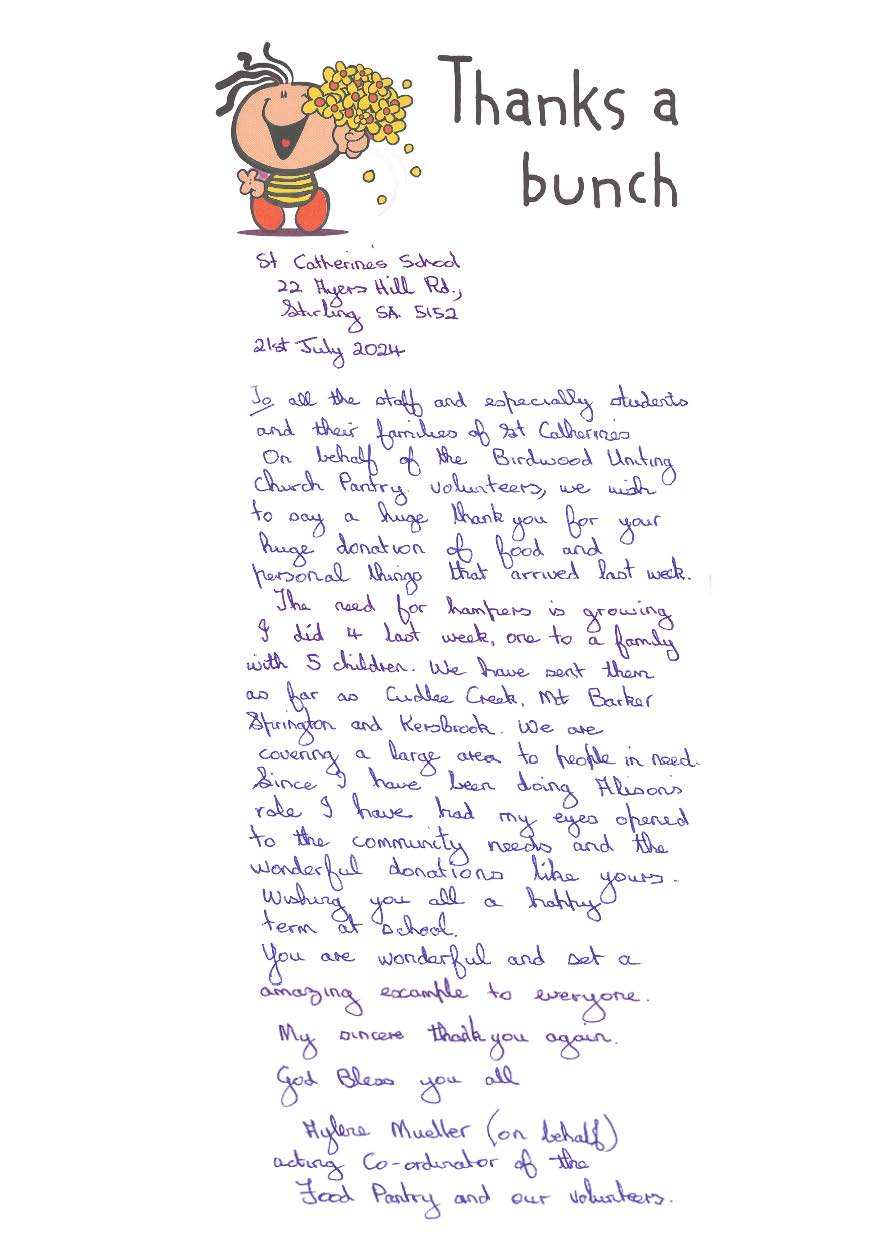 Thanks a
bunch
St Catherine's School
22 Ayers Hill Rd.,
Stirling SA. 5152
21st July 2024
To all the staff and especially students
and their families of St Catherines
On behalf of the Birdwood Uniting
Church Pantry volunteers, we wish
to say a huge thank you for your
huge donation of food and
personal things that arrived last week.
The need for hampers is growing
I did 4 last week, one to a family
with 5 children. We have sent them
as far as Cudlee Creek, Mt Barker
Spirington and Kersbrook. We are
covering a large area to people in need.
Since I have been doing Alison's
role I have had my eyes opened
to the community needs and the
wonderful donations like yours.
Wishing you all a happy
term at school.
You are wonderful and set a
amazing example to everyone.
My sincere thank you again.
God Bless you all
Mueller (on behalf)
acting Co-ordinator of the
Food Pantry and our volunteers.